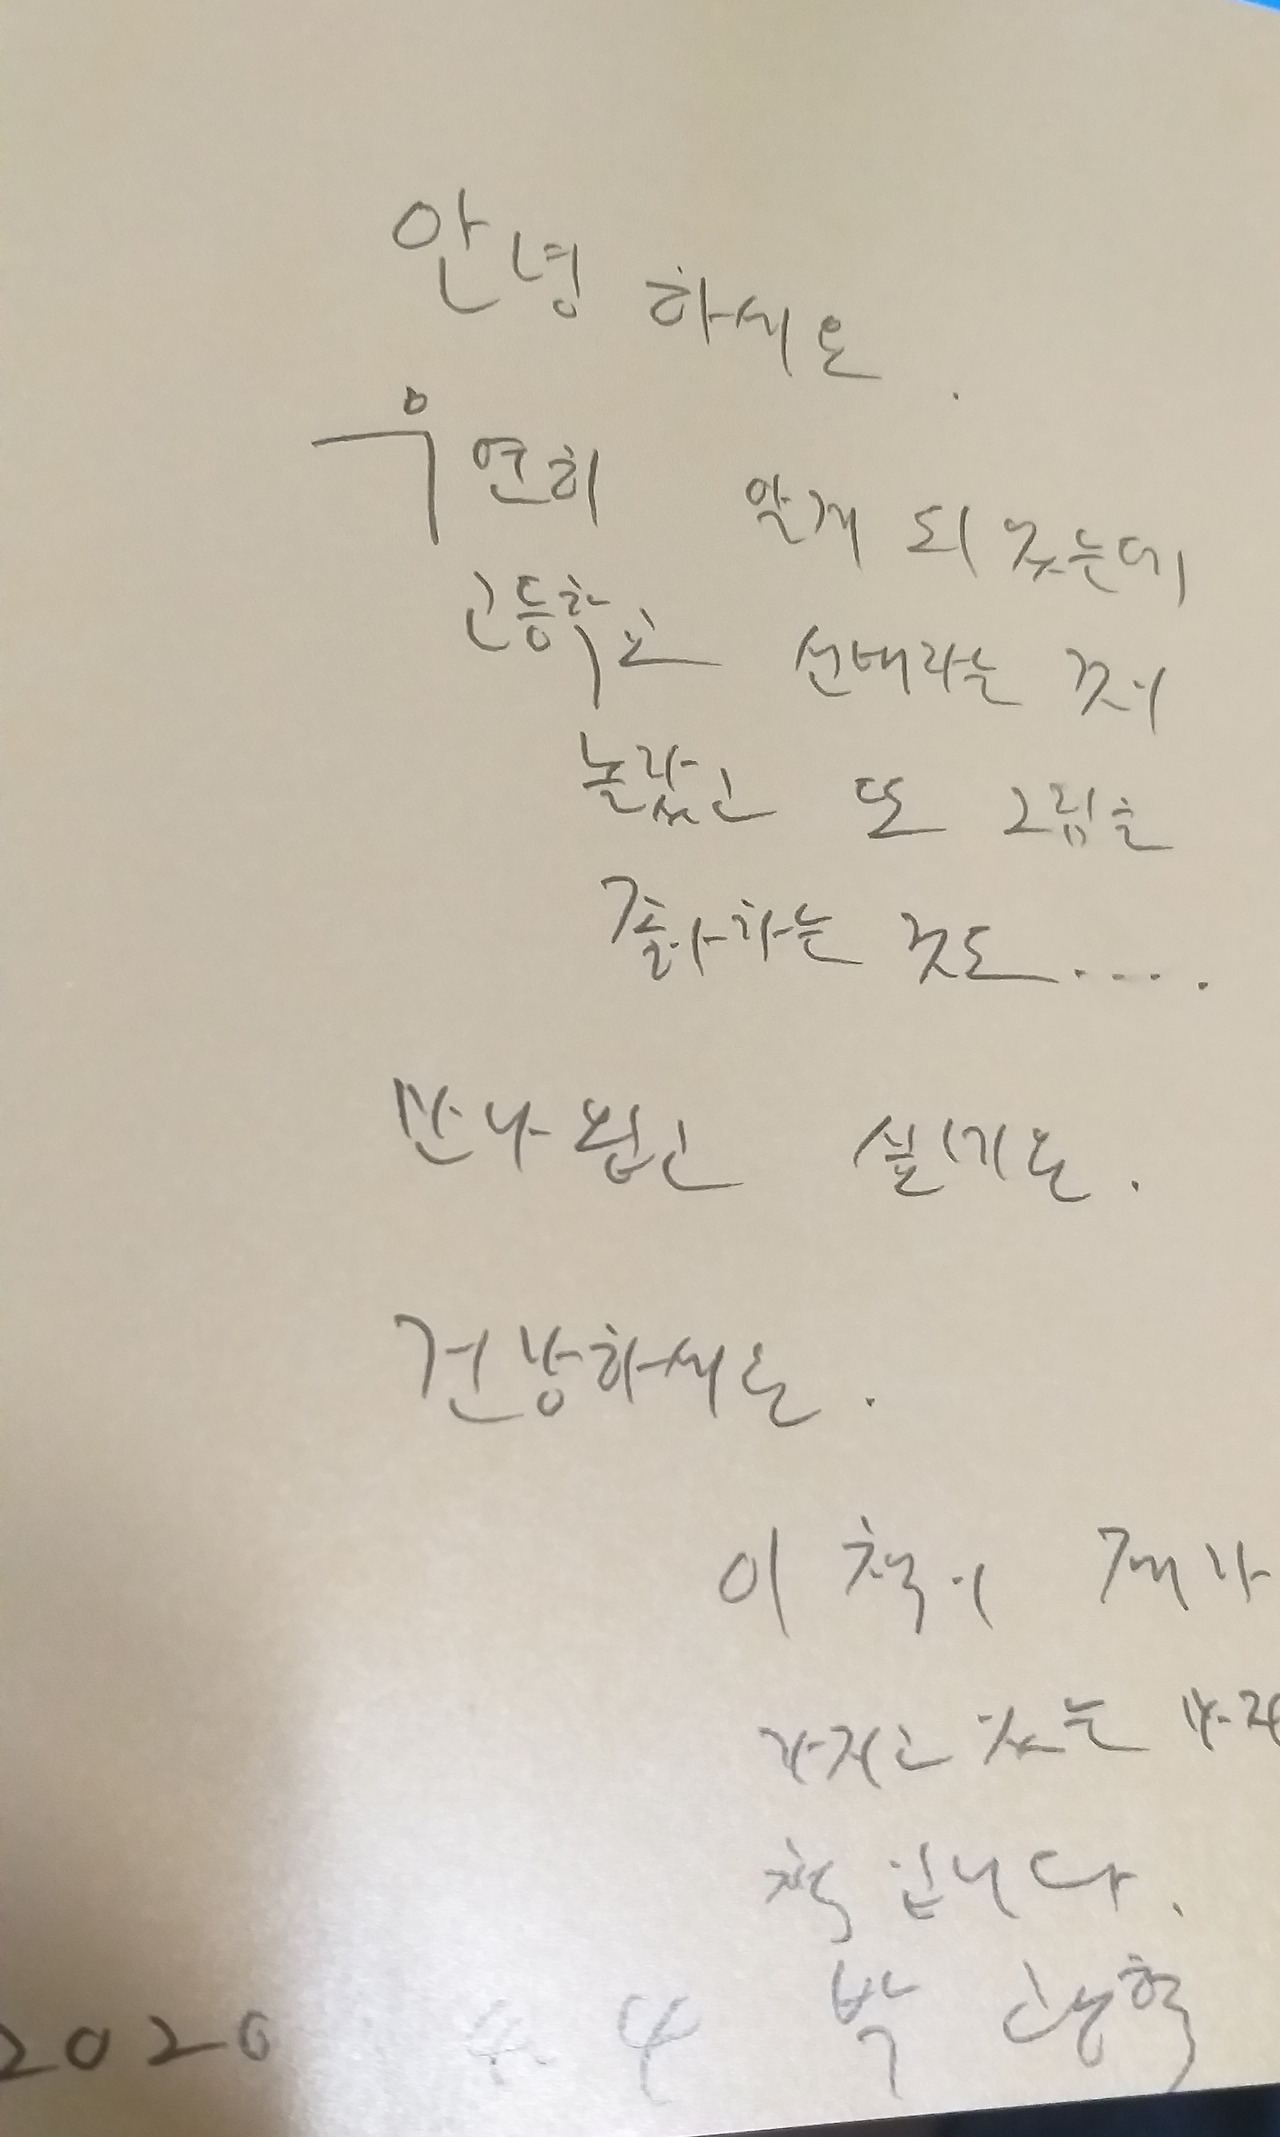 안녕 하세요.
우연히 알게 되었는데
고등학교 선배라는 것이
놀랐고 또 그림을
좋아하는 것도.....
만나 뵙고 싶네요.
건강하세요.
이 책이 제가
가지고 있는
책입니다.
2020 4. 4 박